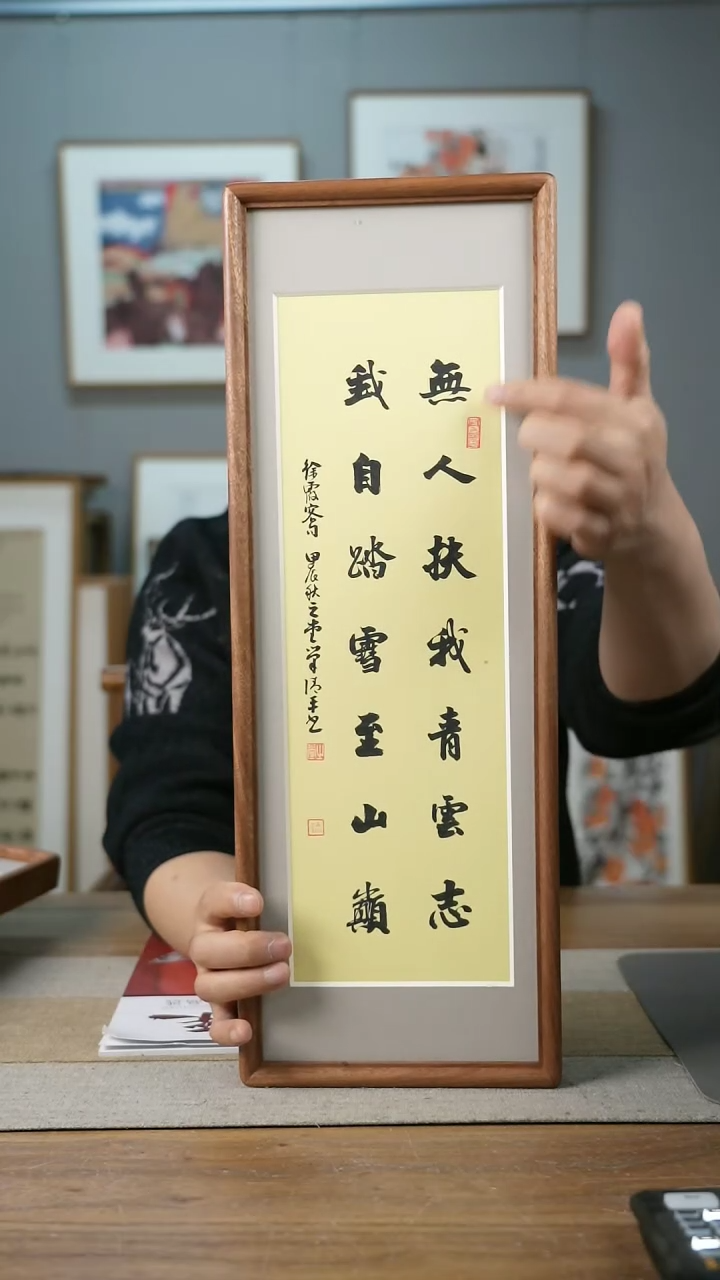 無人扶我青雲志
我自踏雪至山巔
徐霞客句 甲辰秋之